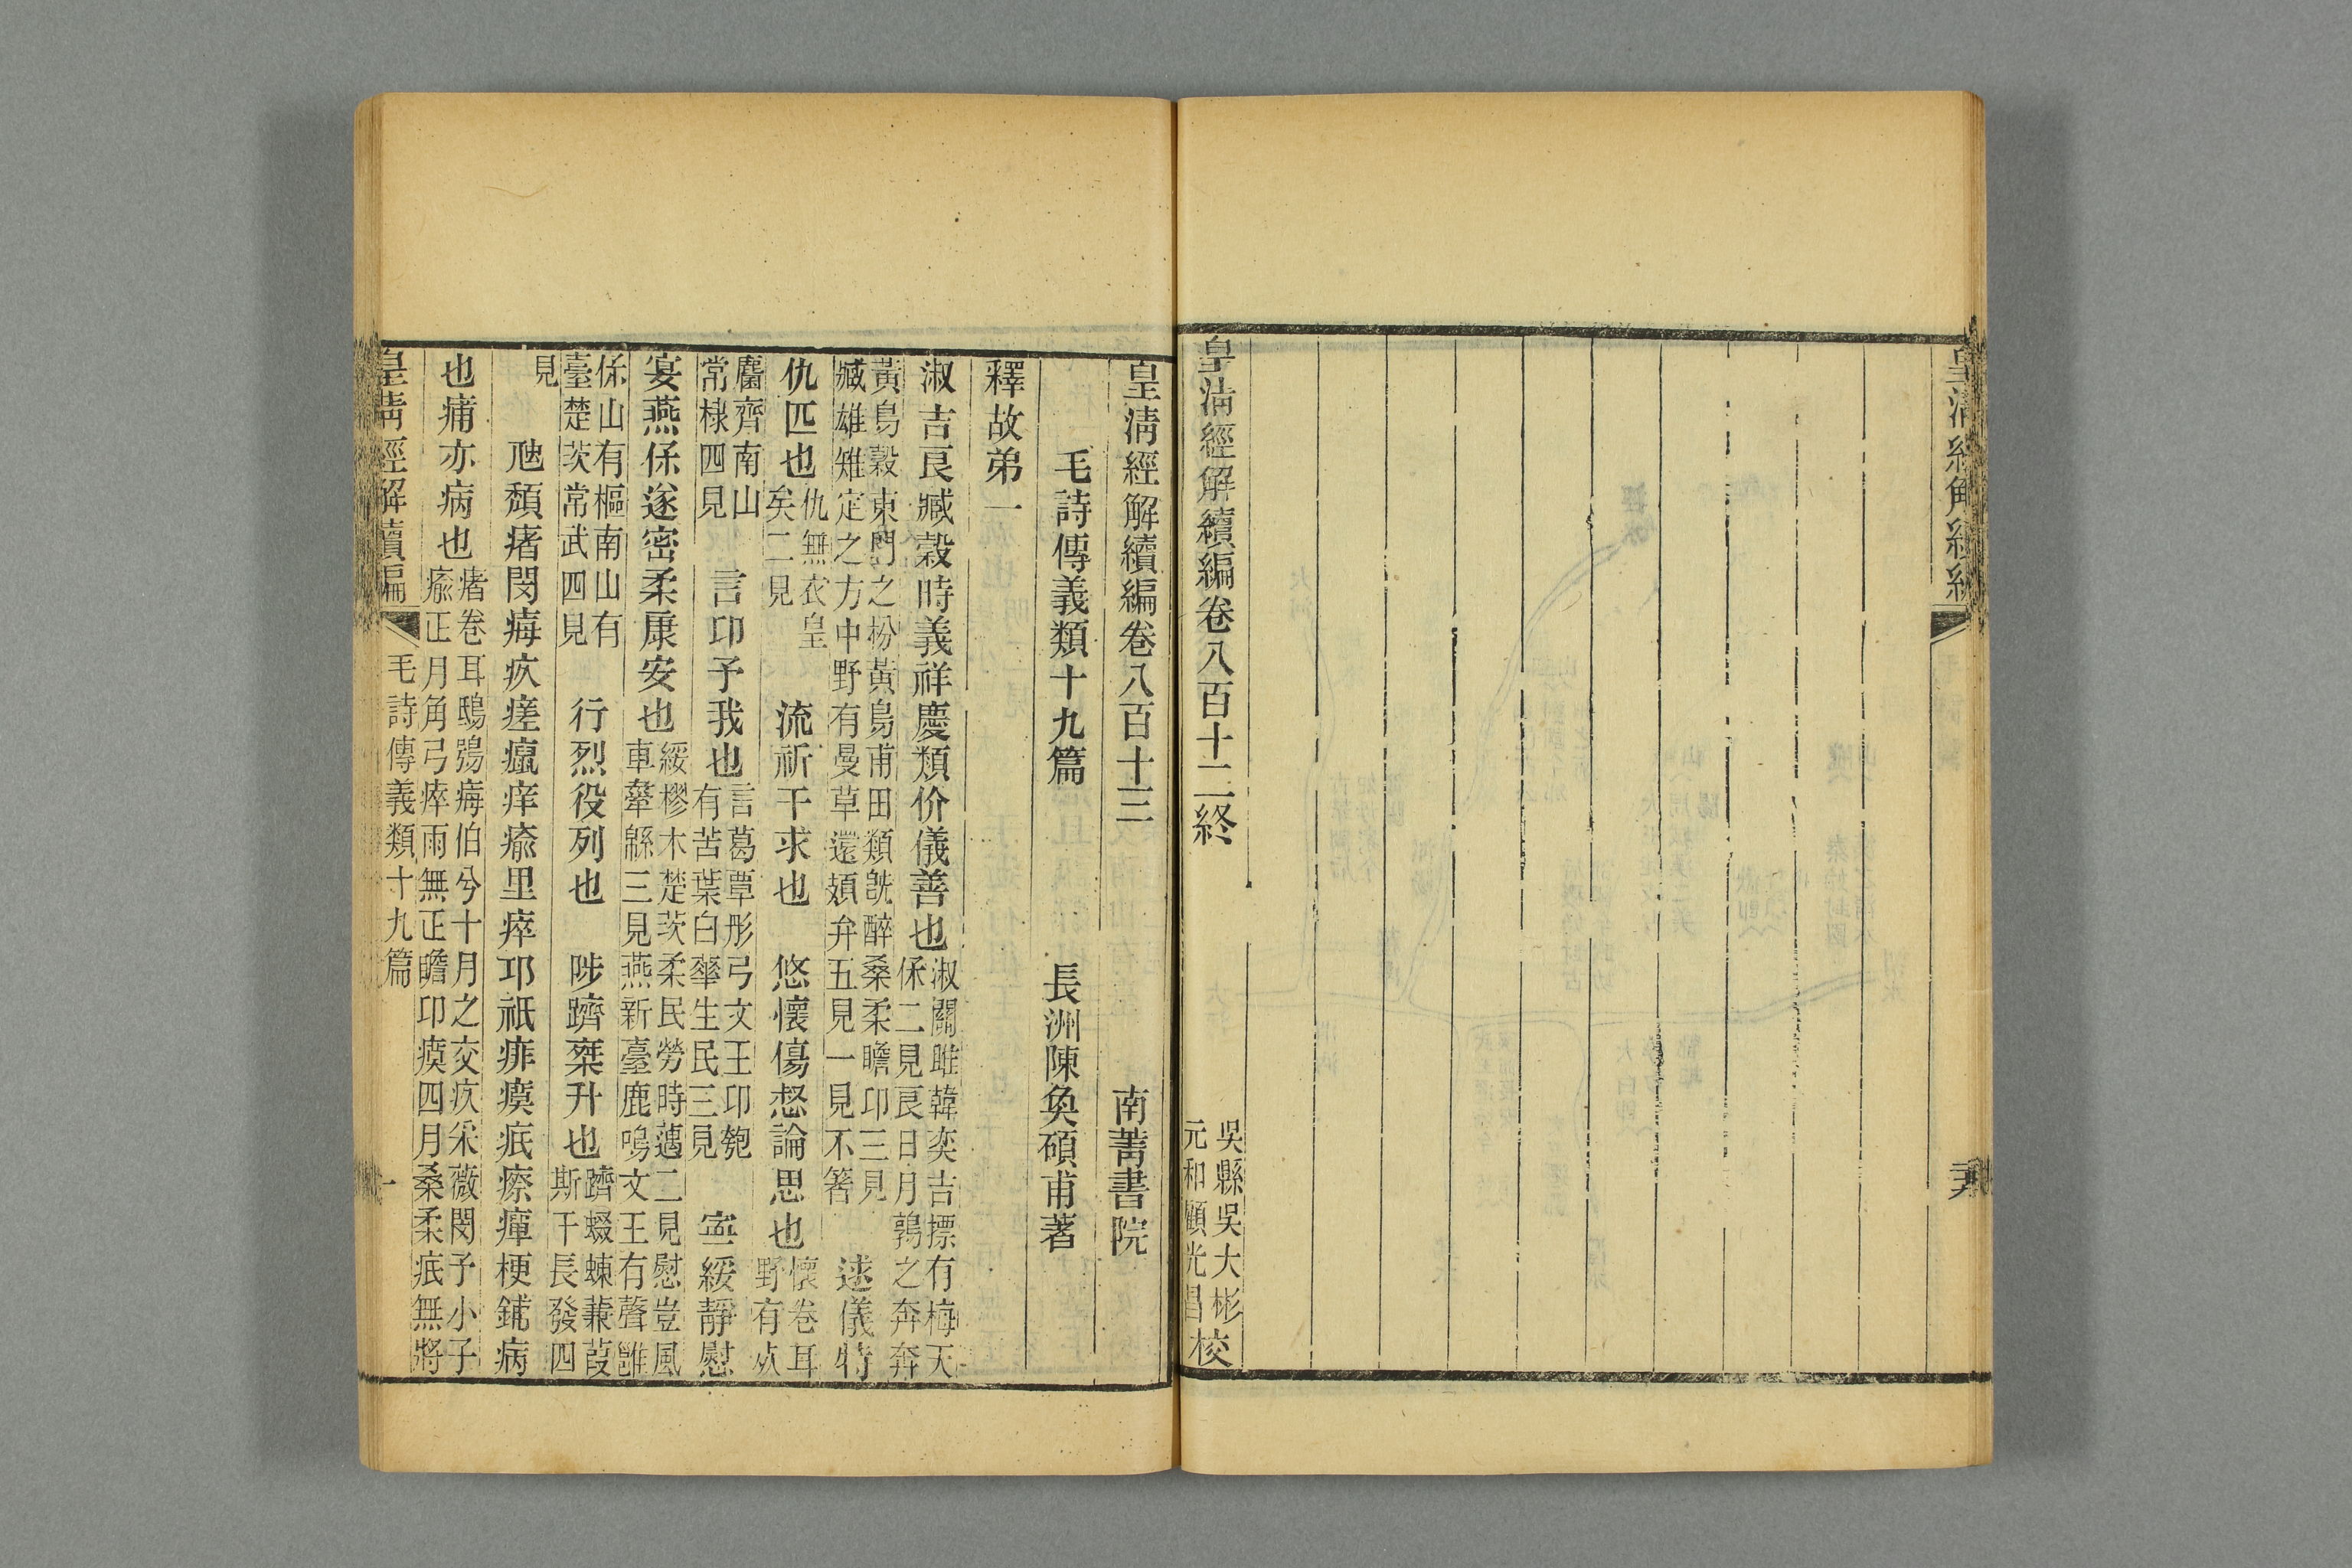 皇淸經解續編
皇淸經解續編卷八百十二終
吳縣吳大彬
元和顧光昌
校
皇淸經解續編卷八百十三　南菁書院
毛詩傳義類十九篇　長洲陳奐碩甫著
釋故弟一
淑吉良臧穀時義祥慶類价儀善也　淑關雎韓奕吉摽有梅天　保二見良日月鶉之奔奔
黃鳥穀東門之枌黃鳥甫田類旣醉桑柔瞻卬三見　臧雄雉定之方中野有蔓草還頍弁五見一見不箸　逑儀特
仇匹也　仇無衣皇　矣二見　流祈干求也　悠懷傷惄論思也　懷卷耳　野有㱙
麕齊南山　常棣四見　言卬予我也　言葛覃彤弓文王卬匏　有苦葉白華生民三見　寍綏靜慰
宴燕保遂密柔康安也　綏樛木楚茨柔民勞時邁二見慰豈風　車舝緜三見燕新臺鹿鳴文王有聲雝
保山有樞南山有　臺楚茨常武四見　行烈役列也　陟躋椉升也　躋蝃蝀蒹葭　斯干長發四
見　虺頹瘏閔痗疚瘥癙痒瘉里瘁邛祇痱瘼疧瘵癉梗鋪病
也痡亦病也　瘏卷耳鴟鴞痗伯兮十月之交疚采薇閔予小子　瘉正月角弓瘁雨無正瞻卬瘼四月桑柔疧無將
皇淸經解續編　毛詩傳義類十九篇　一